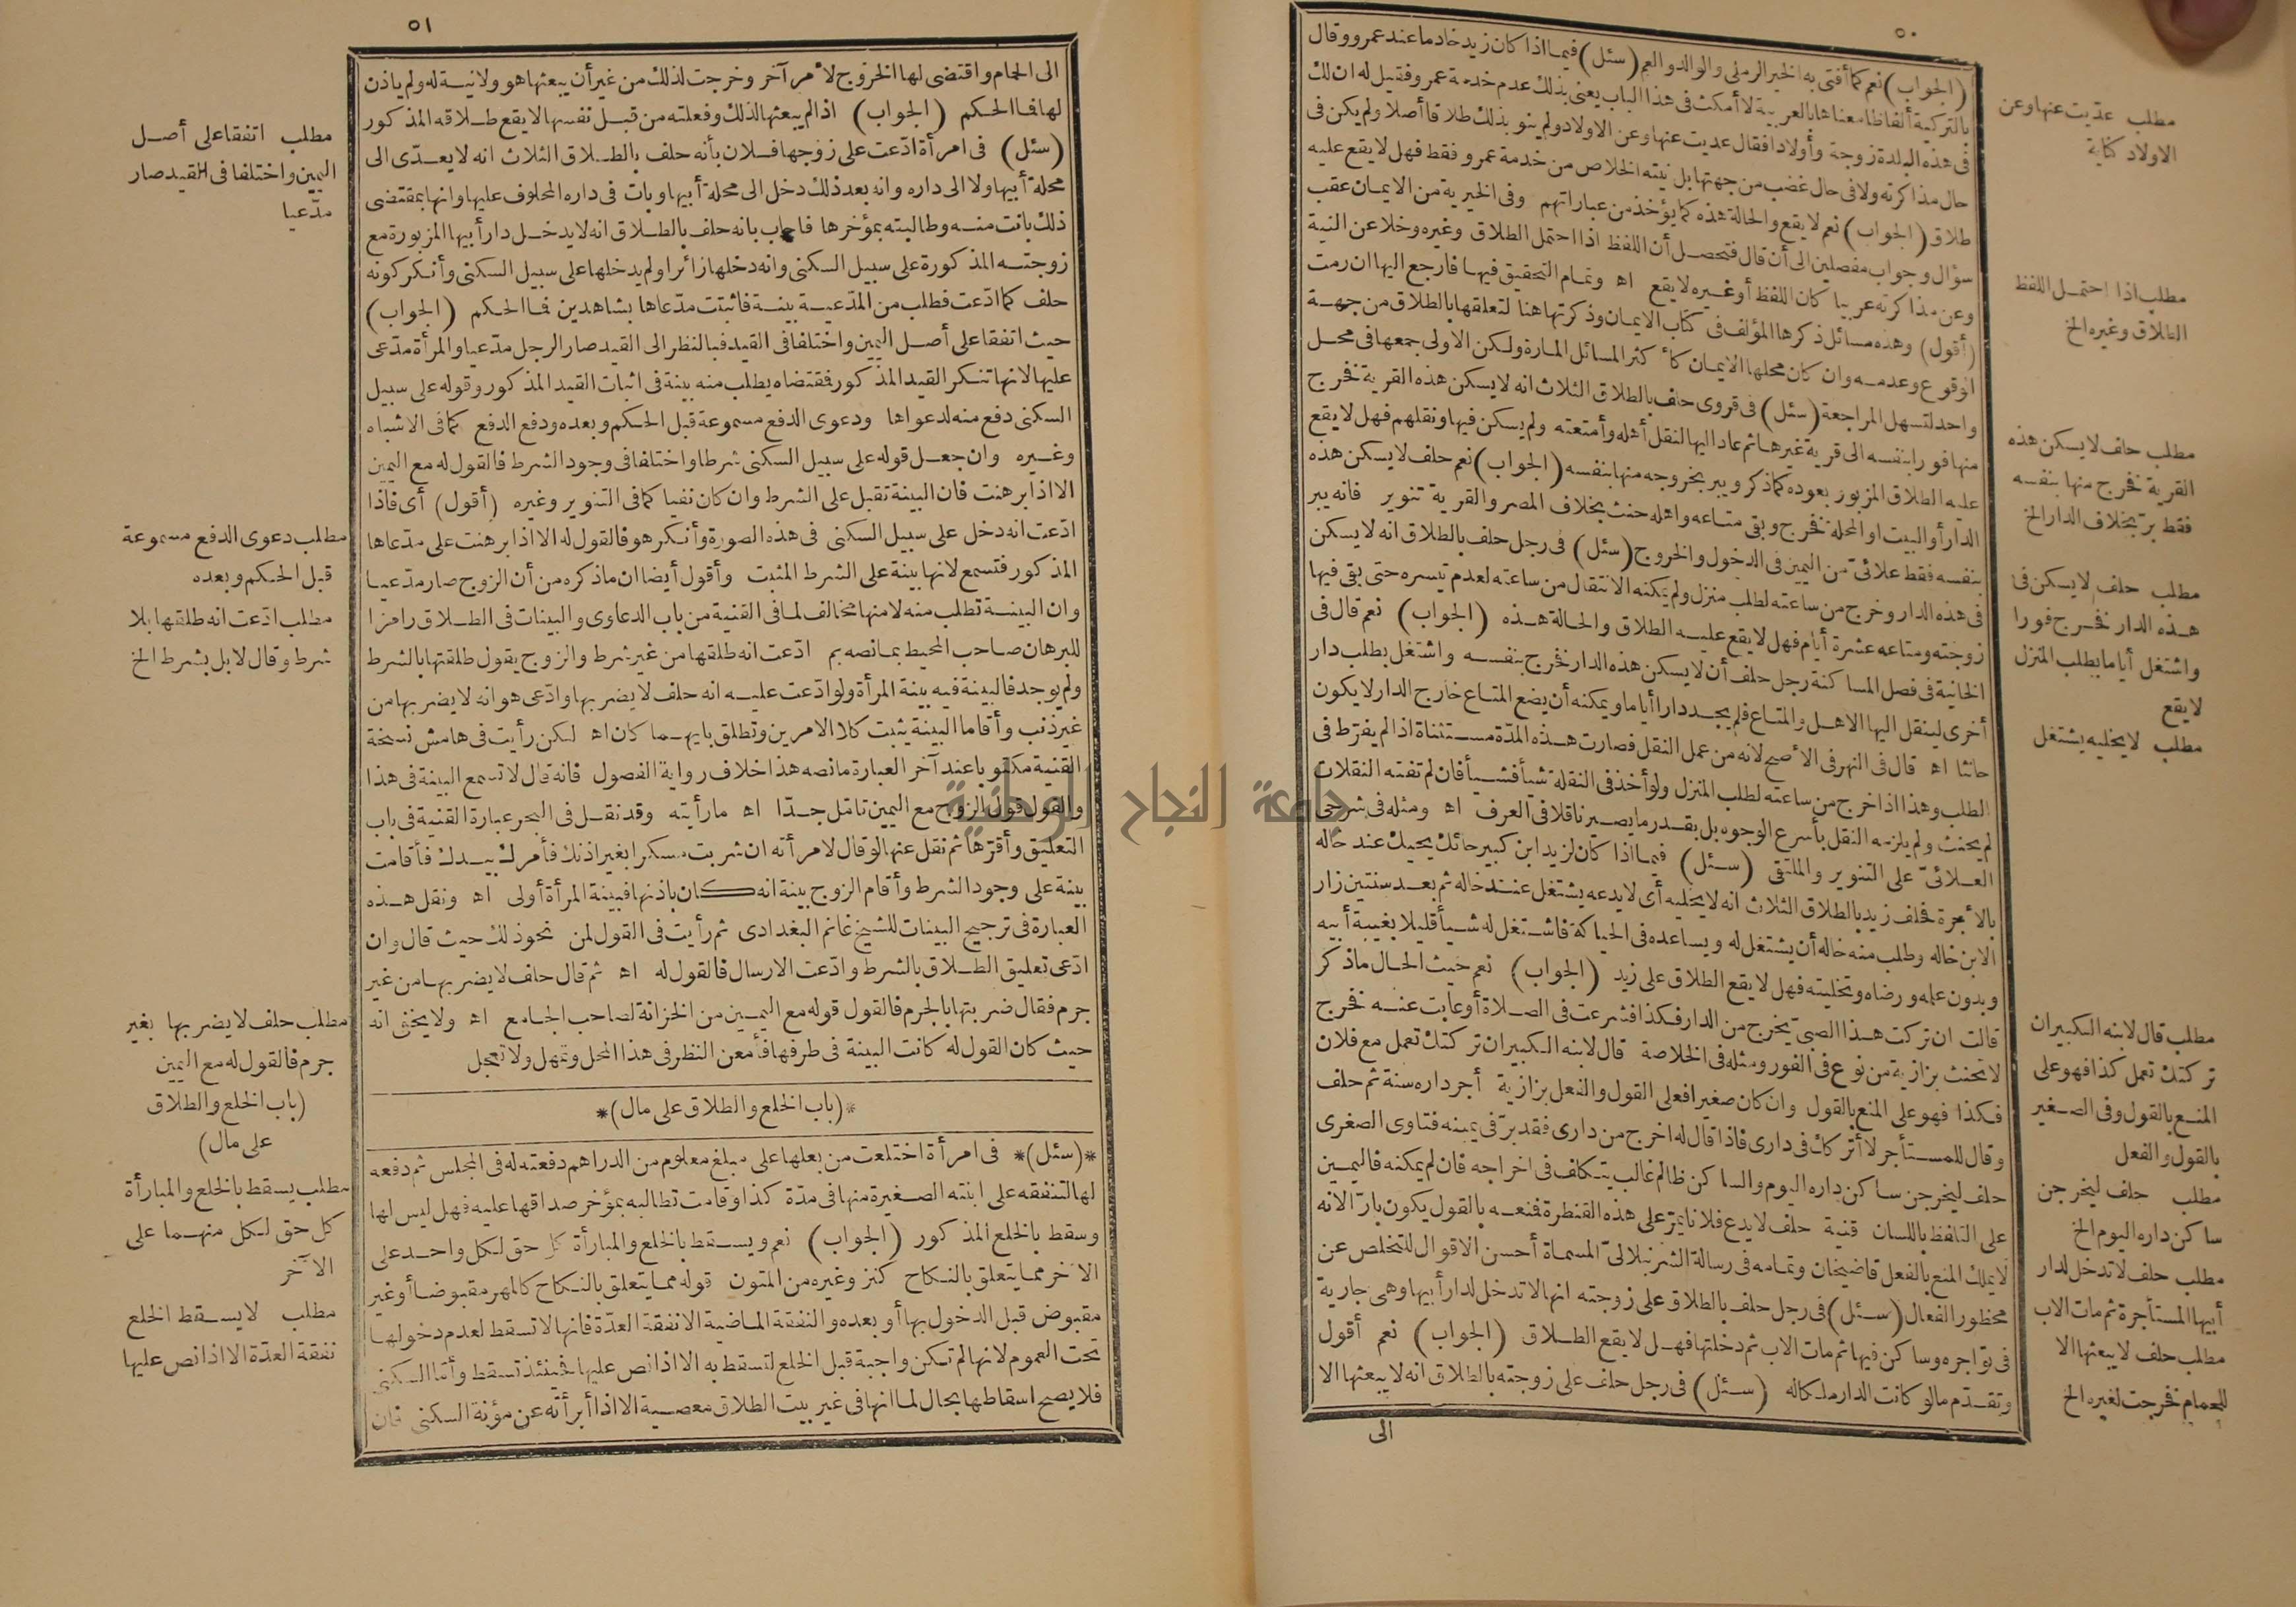 ٥٠
(الجواب) نعم كما أفتى به الخير الرملى والوالد والعم (سئل) فيما اذا كان زيد خادما عند عمرو وقال
بالتركية ألفاظا معناها بالعربية لا أمكث فى هذا الباب يعنى بذلك عدم خدمة عمرو فقيل له ان لك
فى هذه البلدة زوجة وأولادا فقال عديت عنها وعن الاولاد ولم ينو بذلك طلاقا أصلا ولم يكن فى
حال مذاكرته ولا فى حال غضب من جهتها بل نيته الخلاص من خدمة عمرو فقط فهل لا يقع عليه
طلاق (الجواب) نعم لا يقع والحالة هذه كما يؤخذ من عباراتهم وفى الخيرية من الايمان عقب
سؤال وجواب مفصلين الى أن قال فتحصل أن اللفظ اذا احتمل الطلاق وغيره وخلا عن النية
وعن مذاكرته عربيا كان اللفظ أو غيره لا يقع اه وتمام التحقيق فيها فارجع اليها ان رمت
(أقول) وهذه مسائل ذكرها المؤلف فى كتاب الايمان وذكرتها هنا لتعلقها بالطلاق من جهة
الوقوع وعدمه وان كان محلها الايمان كأكثر المسائل المارة ولكن الاولى جمعها فى محل
واحد لتسهل المراجعة (سئل) فى قروى حلف بالطلاق الثلاث انه لا يسكن هذه القرية فخرج
منها فورا بنفسه الى قرية غيرها ثم عاد اليها لنقل أهله وأمتعته ولم يسكن فيها ونقلهم فهل لا يقع
عليه الطلاق المزبور بعوده كما ذكر ويبر بخروجه منها بنفسه (الجواب) نعم حلف لا يسكن هذه
الدار أو البيت او المحلة فخرج وبقى متاعه واهله حنث بخلاف المصر والقرية تنوير فانه يبر
بنفسه فقط علائى من اليمين فى الدخول والخروج (سئل) فى رجل حلف بالطلاق انه لا يسكن
فى هذه الدار وخرج من ساعته لطلب منزل ولم يمكنه الانتقال من ساعته لعدم تيسره حتى بقى فيها
زوجته ومتاعه عشرة أيام فهل لا يقع عليه الطلاق والحالة هذه (الجواب) نعم قال فى
الخانية فى فصل المساكنة رجل حلف أن لا يسكن هذه الدار فخرج بنفسه واشتغل بطلب دار
أخرى لينقل اليها الاهل والمتاع فلم يجد دارا أياما ويمكنه أن يضع المتاع خارج الدار لا يكون
حانثا اه قال فى النهر فى الأصح لانه من عمل النقل فصارت هذه المدة مستثناة اذا لم يفرّط فى
الطلب وهذا اذا خرج من ساعته لطلب المنزل ولو أخذ فى النقلة شيأ فشيأ فان لم تفته النقلات
لم يحنث ولم يلزمه النقل بأسرع الوجوه بل بقدر ما يصير ناقلا فى العرف اه ومثله فى شرحى
العلائىّ على التنوير والملتقى (سئل) فيما اذا كان لزيد ابن كبير حائك يحيك عند خاله
بالأجرة فحلف زيد بالطلاق الثلاث انه لا يخليه أى لا يدعه يشتغل عند خاله ثم بعد سنتين زار
الابن خاله وطلب منه خاله أن يشتغل له ويساعده فى الحياكة فاشتغل له شيأ قليلا بغيبة أبيه
وبدون علمه ورضاه وتخليته فهل لا يقع الطلاق على زيد (الجواب) نعم حيث الحال ما ذكر
قالت ان تركت هذا الصبىّ يخرج من الدار فكذا فشرعت فى الصلاة أو غابت عنه فخرج
لا تحنث بزازية من نوع فى الفور ومثله فى الخلاصة قال لابنه الكبير ان تركتك تعمل مع فلان
فكذا فهو على المنع بالقول وان كان صغيرا فعلى القول والفعل بزازية أجر داره سنة ثم حلف
وقال للمستأجر لا أتركك فى دارى فاذا قال له اخرج من دارى فقد برّ فى يمينه فتاوى الصغرى
حلف ليخرجن ساكن داره اليوم والساكن ظالم غالب يتكلف فى اخراجه فان لم يمكنه فاليمين
على التلفظ باللسان قنية حلف لا يدع فلانا يمرّ على هذه القنطرة فمنعه بالقول يكون بارّا لانه
لا يملك المنع بالفعل قاضيخان وتمامه فى رسالة الشرنبلالىّ المسماة أحسن الاقوال للتخلص عن
محظور الفعال (سئل) فى رجل حلف بالطلاق على زوجته انها لا تدخل لدار أبيها وهى جارية
فى تواجره وساكن فيها ثم مات الاب ثم دخلتها فهل لا يقع الطلاق (الجواب) نعم أقول
وتقدّم ما لو كانت الدار ملكا له (سئل) فى رجل حلف على زوجته بالطلاق انه لا يبعثها الا
الى
مطلب عدّيت عنها وعن
الاولاد كناية
مطلب اذا احتمل اللفظ
الطلاق وغيره الخ
مطلب حلف لا يسكن هذه
القرية فخرج منها بنفسه
فقط برّ بخلاف الدار الخ
مطلب حلف لا يسكن فى
هذه الدار فخرج فورا
واشتغل أياما بطلب المنزل
لا يقع
مطلب لا يخليه يشتغل
مطلب قال لابنه الكبير ان
تركتك تعمل كذا فهو على
المنع بالقول وفى الصغير
بالقول والفعل
مطلب حلف ليخرجن
ساكن داره اليوم الخ
مطلب حلف لا تدخل لدار
أبيها المستأجرة ثم مات الاب
مطلب حلف لا يبعثها الا
للحمام فخرجت لغيره الخ
٥١
الى الحمام واقتضى لها الخروج لأمر آخر وخرجت لذلك من غير أن يبعثها هو ولا نية له ولم ياذن
لها فما الحكم (الجواب) اذا لم يبعثها لذلك وفعلته من قبل نفسها لا يقع طلاقه المذكور
(سئل) فى امرأة ادّعت على زوجها فلان بأنه حلف بالطلاق الثلاث انه لا يعدّى الى
محلة أبيها ولا الى داره وانه بعد ذلك دخل الى محلة أبيها وبات فى داره المحلوف عليها وانها بمقتضى
ذلك بانت منه وطالبته بمؤخرها فاجاب بانه حلف بالطلاق انه لا يدخل دار أبيها المزبورة مع
زوجته المذكورة على سبيل السكنى وانه دخلها زائرا ولم يدخلها على سبيل السكنى وأنكر كونه
حلف كما ادّعت فطلب من المدّعية بينة فاثبتت مدّعاها بشاهدين فما الحكم (الجواب)
حيث اتفقا على أصل اليمين واختلفا فى القيد فبالنظر الى القيد صار الرجل مدّعيا والمرأة مدّعى
عليها لانها تنكر القيد المذكور فمقتضاه يطلب منه بينة فى اثبات القيد المذكور وقوله على سبيل
السكنى دفع منه لدعواها ودعوى الدفع مسموعة قبل الحكم وبعده ودفع الدفع كما فى الاشباه
وغيره وان جعل قوله على سبيل السكنى شرطا واختلفا فى وجود الشرط فالقول له مع اليمين
الا اذا برهنت فان البينة تقبل على الشرط وان كان نفيا كما فى التنوير وغيره (أقول) أى فاذا
ادّعت انه دخل على سبيل السكنى فى هذه الصورة وأنكر هو فالقول له الا اذا برهنت على مدّعاها
المذكور فتسمع لانها بينة على الشرط المثبت وأقول أيضا ان ما ذكره من أن الزوج صار مدّعيا
وان البينة تطلب منه لا منها مخالف لما فى القنية من باب الدعاوى والبينات فى الطلاق رامزا
للبرهان صاحب المحيط بما نصه بم ادّعت انه طلقها من غير شرط والزوج يقول طلقتها بالشرط
ولم يوجد فالبينة فيه بينة المرأة ولو ادّعت عليه انه حلف لا يضربها وادّعى هو انه لا يضربها من
غير ذنب وأقاما البينة يثبت كلا الامرين وتطلق بايهما كان اه لكن رأيت فى هامش نسخة
القنية مكتوبا عند آخر العبارة ما نصه هذا خلاف رواية الفصول فانه قال لا تسمع البينة فى هذا
والقول قول الزوج مع اليمين تامّل جدّا اه ما رأيته وقد نقل فى البحر عبارة القنية فى باب
التعليق وأقرّها ثم نقل عنها لو قال لامرأته ان شربت مسكرا بغير اذنك فأمرك بيدك فأقامت
بينة على وجود الشرط وأقام الزوج بينة انه كان باذنها فبينة المرأة أولى اه ونقل هذه
العبارة فى ترجيح البينات للشيخ غانم البغدادى ثم رأيت فى القول لمن نحو ذلك حيث قال وان
ادّعى تعليق الطلاق بالشرط وادّعت الارسال فالقول له اه ثم قال حلف لا يضربها من غير
جرم فقال ضربتها بالجرم فالقول قوله مع اليمين من الخزانة لصاحب الجامع اه ولا يخفى انه
حيث كان القول له كانت البينة فى طرفها فأمعن النظر فى هذا المحل وتمهل ولا تعجل
*(باب الخلع والطلاق على مال)*
*(سئل)* فى امرأة اختلعت من بعلها على مبلغ معلوم من الدراهم دفعته له فى المجلس ثم دفعه
لها لتنفقه على ابنته الصغيرة منها فى مدّة كذا وقامت تطالبه بمؤخر صداقها عليه فهل ليس لها
وسقط بالخلع المذكور (الجواب) نعم ويسقط بالخلع والمبارأة كل حق لكل واحد على
الآخر مما يتعلق بالنكاح كنز وغيره من المتون قوله مما يتعلق بالنكاح كالمهر مقبوضا أو غير
مقبوض قبل الدخول بها أو بعده والنفقة الماضية الا نفقة العدّة فانها لا تسقط لعدم دخولها
تحت العموم لانها لم تكن واجبة قبل الخلع لتسقط به الا اذا نص عليها فحينئذ تسقط وأمّا السكنى
فلا يصح اسقاطها بحال لما انها فى غير بيت الطلاق معصية الا اذا أبرأته عن مؤنة السكنى فان
مطلب اتفقا على أصل
اليمين واختلفا فى القيد صار
مدّعيا
مطلب دعوى الدفع مسموعة
قبل الحكم وبعده
مطلب ادّعت انه طلقها بلا
شرط وقال لا بل بشرط الخ
مطلب حلف لا يضربها بغير
جرم فالقول له مع اليمين
(باب الخلع والطلاق
على مال)
مطلب يسقط بالخلع والمبارأة
كل حق لكل منهما على
الآخر
مطلب لا يسقط الخلع
نفقة العدّة الا اذا نص عليها
جامعة النجاح الوطنية